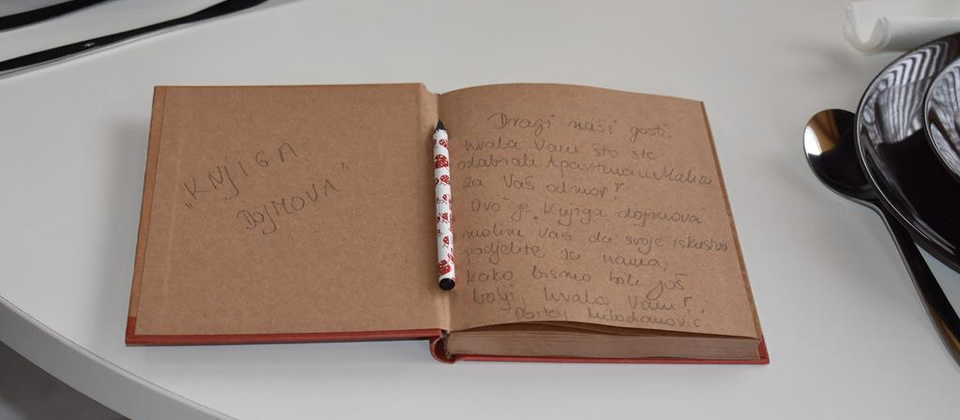 „KNJIGA
DOJMOVA"
Dragi naši gosti,
hvala Vam što ste
odabrali Apartman Maka
za Vaš odmor!
Ovo je „Knjiga dojmova"
molim Vas da svoje iskustvo
podjelite sa nama,
kako bismo bili još
bolji, hvala Vam!
Obitelj